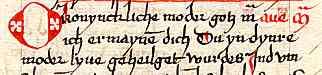 O konynckliche moder gotz m aue m
ich ermayne dich Du yn dyme
moder lyue geheilget wurdes Ind vm